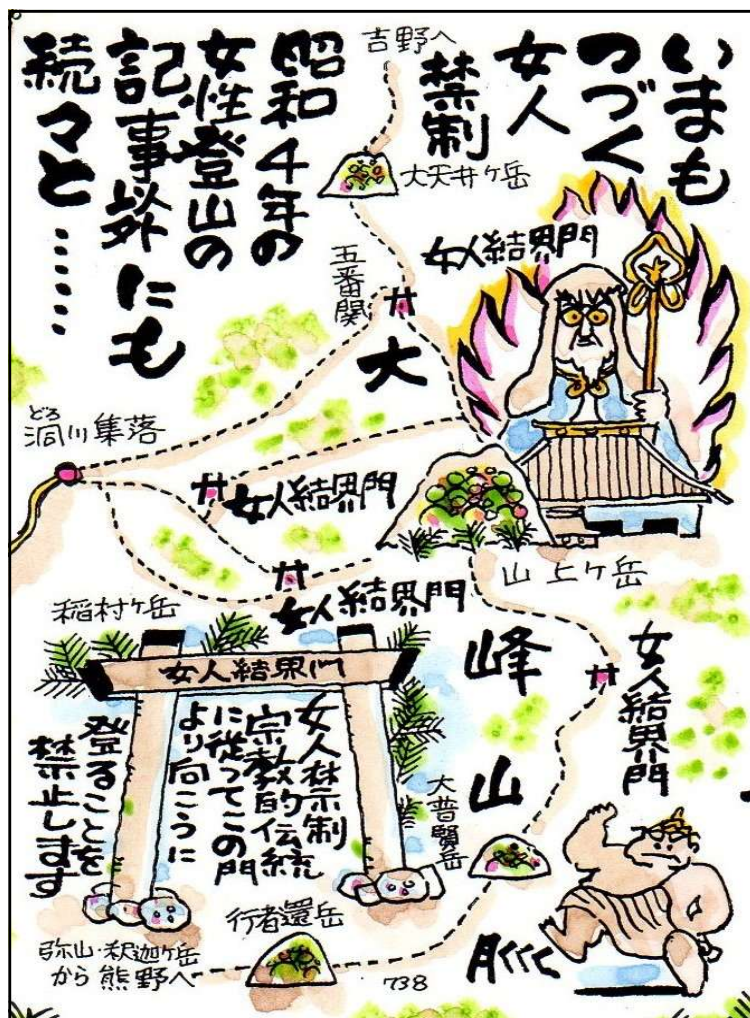 いまも
つづく
女人
禁制
昭和4年の
女性登山の
記事以外にも
続々と……
吉野へ
大天井ケ岳
女人結界門
五番関
大
どろ
洞川集落
女人結界門
山上ケ岳
女人結界門
稲村ケ岳
峰
山
女人結界門
女人結界門
女人禁制
宗教的伝統
に従ってこの門
より向こうに
登ることを
禁止します
大普賢岳
行者還岳
弥山・釈迦ケ岳
から熊野へ
738